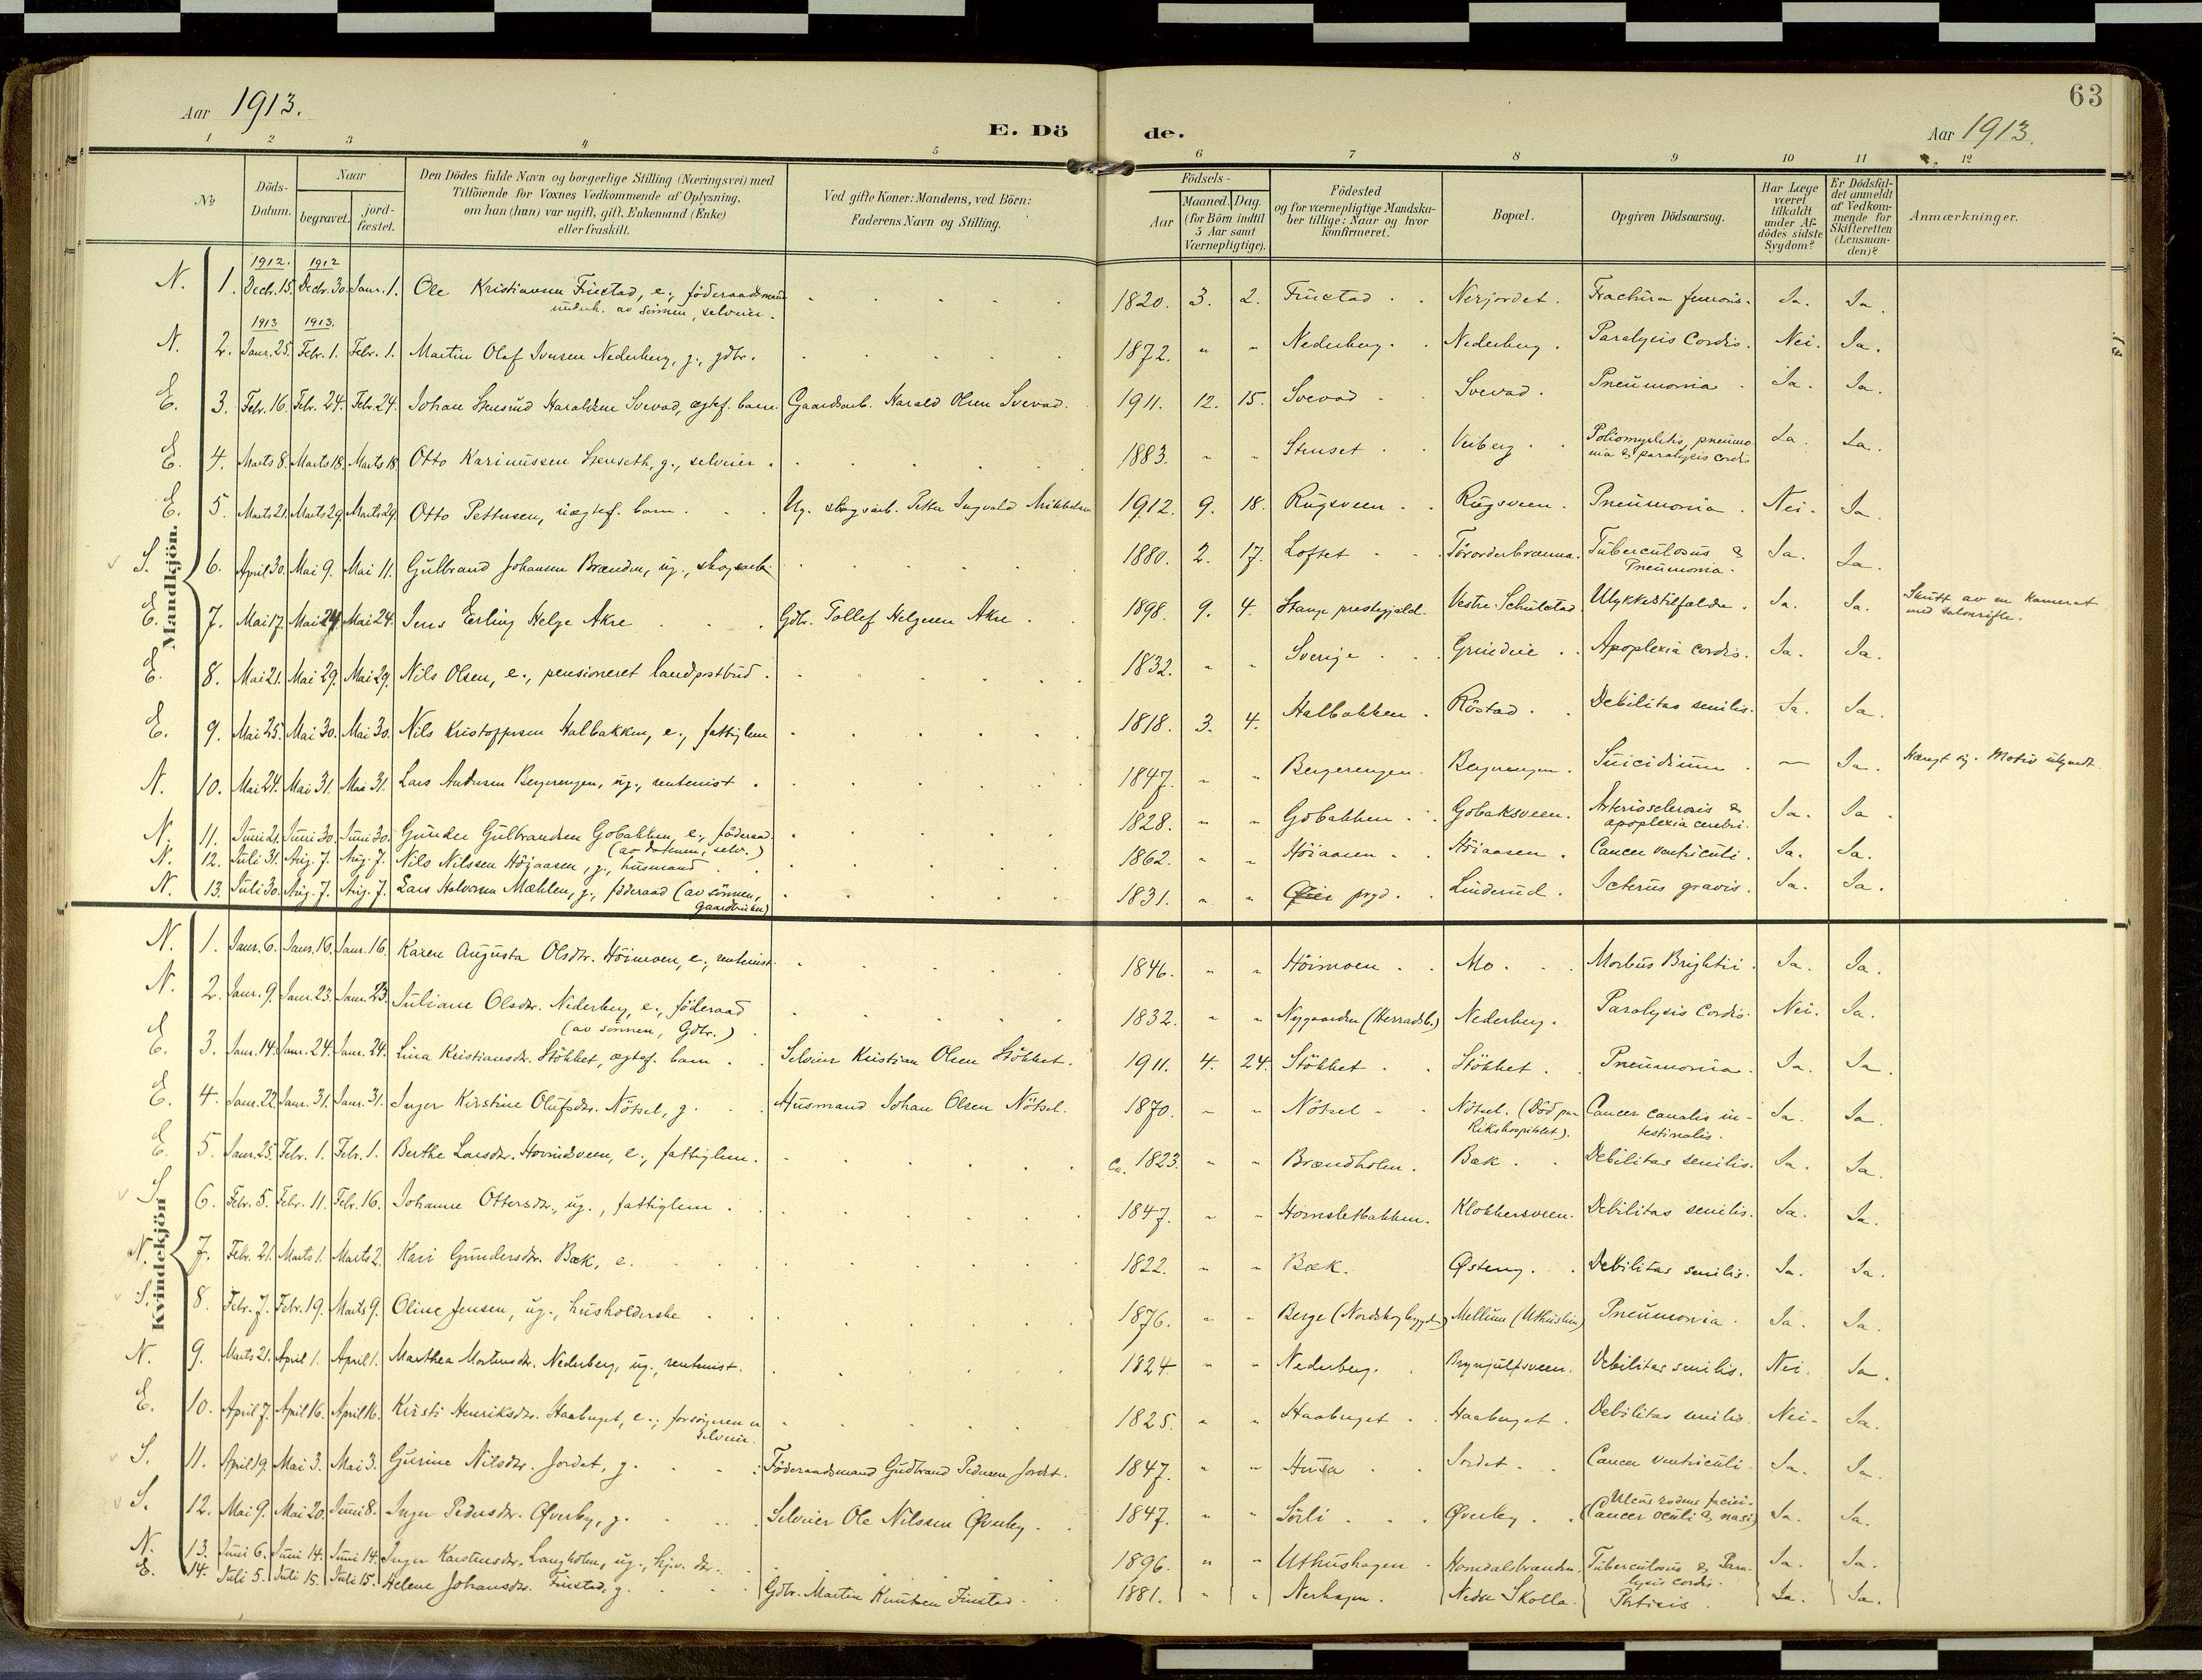 63
Aar 1913.
E. Dö de.
Aar 1913.
1 2 3 4 5 6 7 8 9 10 11 12
No
Döds-Datum.
Naar
begravet.
jordfæstet.
Den Dödes fulde Navn og borgerlige Stilling (Næringsvei) med
Tilföiende for Voxnes Vedkommende af Oplysning,
om han (hun) var ugift, gift, Enkemand (Enke)
eller fraskilt.
Ved gifte Koner: Mandens, ved Börn:
Faderens Navn og Stilling.
Födsels-
Aar
Maaned. Dag.
(for Börn indtil
5 Aar samt
Værnepligtige).
Födested
og for værnepligtige Mandska-
ber tillige: Naar og hvor
konfirmeret.
Bopæl.
Opgiven Dödsaarsag.
Har Læge
været
tilkaldt
under Af-
dödes sidste
Sygdom?
Er Dödsfal-
det anmeldt
af Vedkom-
mende for
Skifteretten
(Lensman-
den)?
Anmærkninger.
Mandkjön.
1912. 1912
N. 1. Decb. 15. Decbr. 30. Janr. 1. Ole Kristiansen Finstad, e., föderaadsmand 1820. 3. 2. Finstad Nerjordet. Fractura femoris. Ja. Ja.
underh. av sönnen, selveier.
1913 1913.
N. 2. Janr. 25. Febr. 1. Febr. 1. Martin Olaf Iversen Nederberg, g., gdbr. 1872. " " Nederberg. Nederberg. Paralysis Cordis. Nei. Ja.
E. 3. Febr. 16. Febr. 24. Febr. 24. Johan Stensrud Haraldsen Svevad, ægtef. barn. Gaardsarb. Harald Olsen Svevad. 1911. 12. 15. Svevad Svevad. Pneumonia. Ja. Ja.
E. 4. Marts 8. Marts 18. Marts 18. Otto Karinussen Stenseth, g., selveier. 1883. " " Stenset Veiberg. Poliomyelitis, pneumo-
nia & paralysis cordis Ja. Ja.
E. 5. Marts 21. Marts 29. Marts 29. Otto Pettersen, uægtef. barn. Ug. skogsarb. Petter Ingvald Mikkelsen 1912. 9. 18. Rugsveen Rugsveen. Pneumonia. Nei. Ja.
S. 6. April 30. Mai 9. Mai 11. Gulbrand Johansen Brænden, ug., skogsarb. 1880. 2. 17. Loftet Tuberculosus &
Pneumonia. Ja. Ja.
E. 7. Mai 17. Mai 24. Mai 24. Jens Erling Helge Akre Gdbr. Tollef Helgesen Akre. 1898. 9. 4. Stange prestegjeld. Vestre Schulstad. Ulykkestilfælde. Ja. Ja. Skutt av en kamerat
med salonrifle.
E. 8. Mai 21. Mai 29. Mai 29. Nils Olsen, e., pensioneret landpostbud. 1832. " " Sverige Grindeie. Apoplexia cordis. Ja. Ja.
E. 9. Mai 25. Mai 30. Mai 30. Nils Kristoffersen Halbakken, e., fattiglem 1818. 3. 4. Halbakken. Röstad. Debilitas senilis. Ja. Ja.
N. 10. Mai 24. Mai 31. Mai 31. Lars Andersen Bergerengen, ug., rentenist. 1847. " " Bergerengen. Bergerengen. Suicidium. — Ja. Hængt sig. Motiv ukjendt.
N. 11. Juni 21. Juni 30. Juni 30. Gunder Gulbrandsen Gobakken, e., föderaad 1828. " " Gobakken. Gobaksveen. Arteriosclerosis &
(av datteren, selv.) apoplexia cerebri. Ja. Ja.
N. 12. Juli 31. Aug. 7. Aug. 7. Nils Nilssen Höjaasen, g., husmand 1862. " " Höiaasen. Höiaasen. Cancer ventriculi. Ja. Ja.
N. 13. Juli 30. Aug. 7. Aug. 7. Lars Halvorsen Mæhlen, g., föderaad (av sönnen,
gaardbruker) 1831. " " Øier prgd. Linderud. Icterus gravis. Ja. Ja.
Kvindekjön
N. 1. Janr. 6. Janr. 16. Janr. 16. Karen Augusta Olsdtr. Höimoen, e., rentenist. 1846. " " Höimoen Mo. Morbus Brightii. Ja. Ja.
N. 2. Janr. 9. Janr. 23. Janr. 23. Juliane Olsdtr. Nederberg, e., föderaad
(av sönnen, Gdbr.) 1832. " " Nygaarden (Herradsb.) Nederberg. Paralysis Cordis. Nei. Ja.
E. 3. Janr. 14. Janr. 24. Janr. 24. Lina Kristiansdtr. Stökket, ægtef. barn. Selveier Kristian Olsen Stökket. 1911. 4. 24. Stökket Stökket. Pneumonia. Ja. Ja.
E. 4. Janr. 22. Janr. 31. Janr. 31. Inger Kirstine Olufsdtr. Nötsel, g. Husmand Johan Olsen Nötsel. 1870. " " Nötsel Nötsel. (Död paa
Rikshospitalet). Cancer canalis in-
testinalis. Ja. Ja.
E. 5. Janr. 25. Febr. 1. Febr. 1. Berthe Larsdtr. Hovindsveen, e., fattiglem. Ca. 1823. " " Brændholen. Bæk. Debilitas senilis. Ja. Ja.
S. 6. Febr. 5. Febr. 11. Febr. 16. Johanne Ottersdtr., ug., fattiglem. 1847. " " Hornsletbakken. Klokkersveen. Debilitas senilis. Ja. Ja.
N. 7. Febr. 21. Marts 1. Marts 2. Kari Gundersdtr. Bæk, e. 1822. " " Bæk. Østeng. Debilitas senilis. Ja. Ja.
S. 8. Febr. 7. Febr. 19. Marts 9. Oline Jensen, ug., husholderske 1876. " " Berge (Nordskogbygden) Mellum (Uthuslien) Pneumonia. Ja. Ja.
N. 9. Marts 21. April 1. April 1. Marthea Mortensdtr. Nederberg, ug., rentenist. 1824 " " Nederberg. Brynjulfsveen. Debilitas senilis. Nei. Ja.
E. 10. April 7. April 16. April 16. Kirsti Henriksdtr. Haaberget, e., forsörgeren er
selveier. 1825. " " Haaberget Haaberget. Debilitas senilis. Nei. Ja.
S. 11. April 19. Mai 3. Mai 3. Gurine Nilsdtr. Jordet, g. Föderaadsmand Gudbrand Pedersen Jordet. 1847. " " Husa Jordet. Cancer ventriculi. Ja. Ja.
S. 12. Mai 9. Mai 20. Juni 8. Inger Pedersdtr. Øverby, g. Selveier Ole Nilssen Øverby. 1847. " " Sörli Øverby. Ulcus rodens faciei.
(Cancer oculi & nasi) Ja. Ja.
N. 13. Juni 6. Juni 14. Juni 14. Inger Karstensdtr. Langholen, ug., hjv. dtr. 1896. " " Uthushagen Horndalsbrænden. Tuberculosus & Para-
lysis cordis. Ja. Ja.
E. 14. Juli 5. Juli 15. Juli 15. Helene Johansdtr. Finstad, g. Gdbr. Martin Knutsen Finstad. 1881. " " Nerhagen. Nedre Skolla. Phtisis. Ja. Ja.